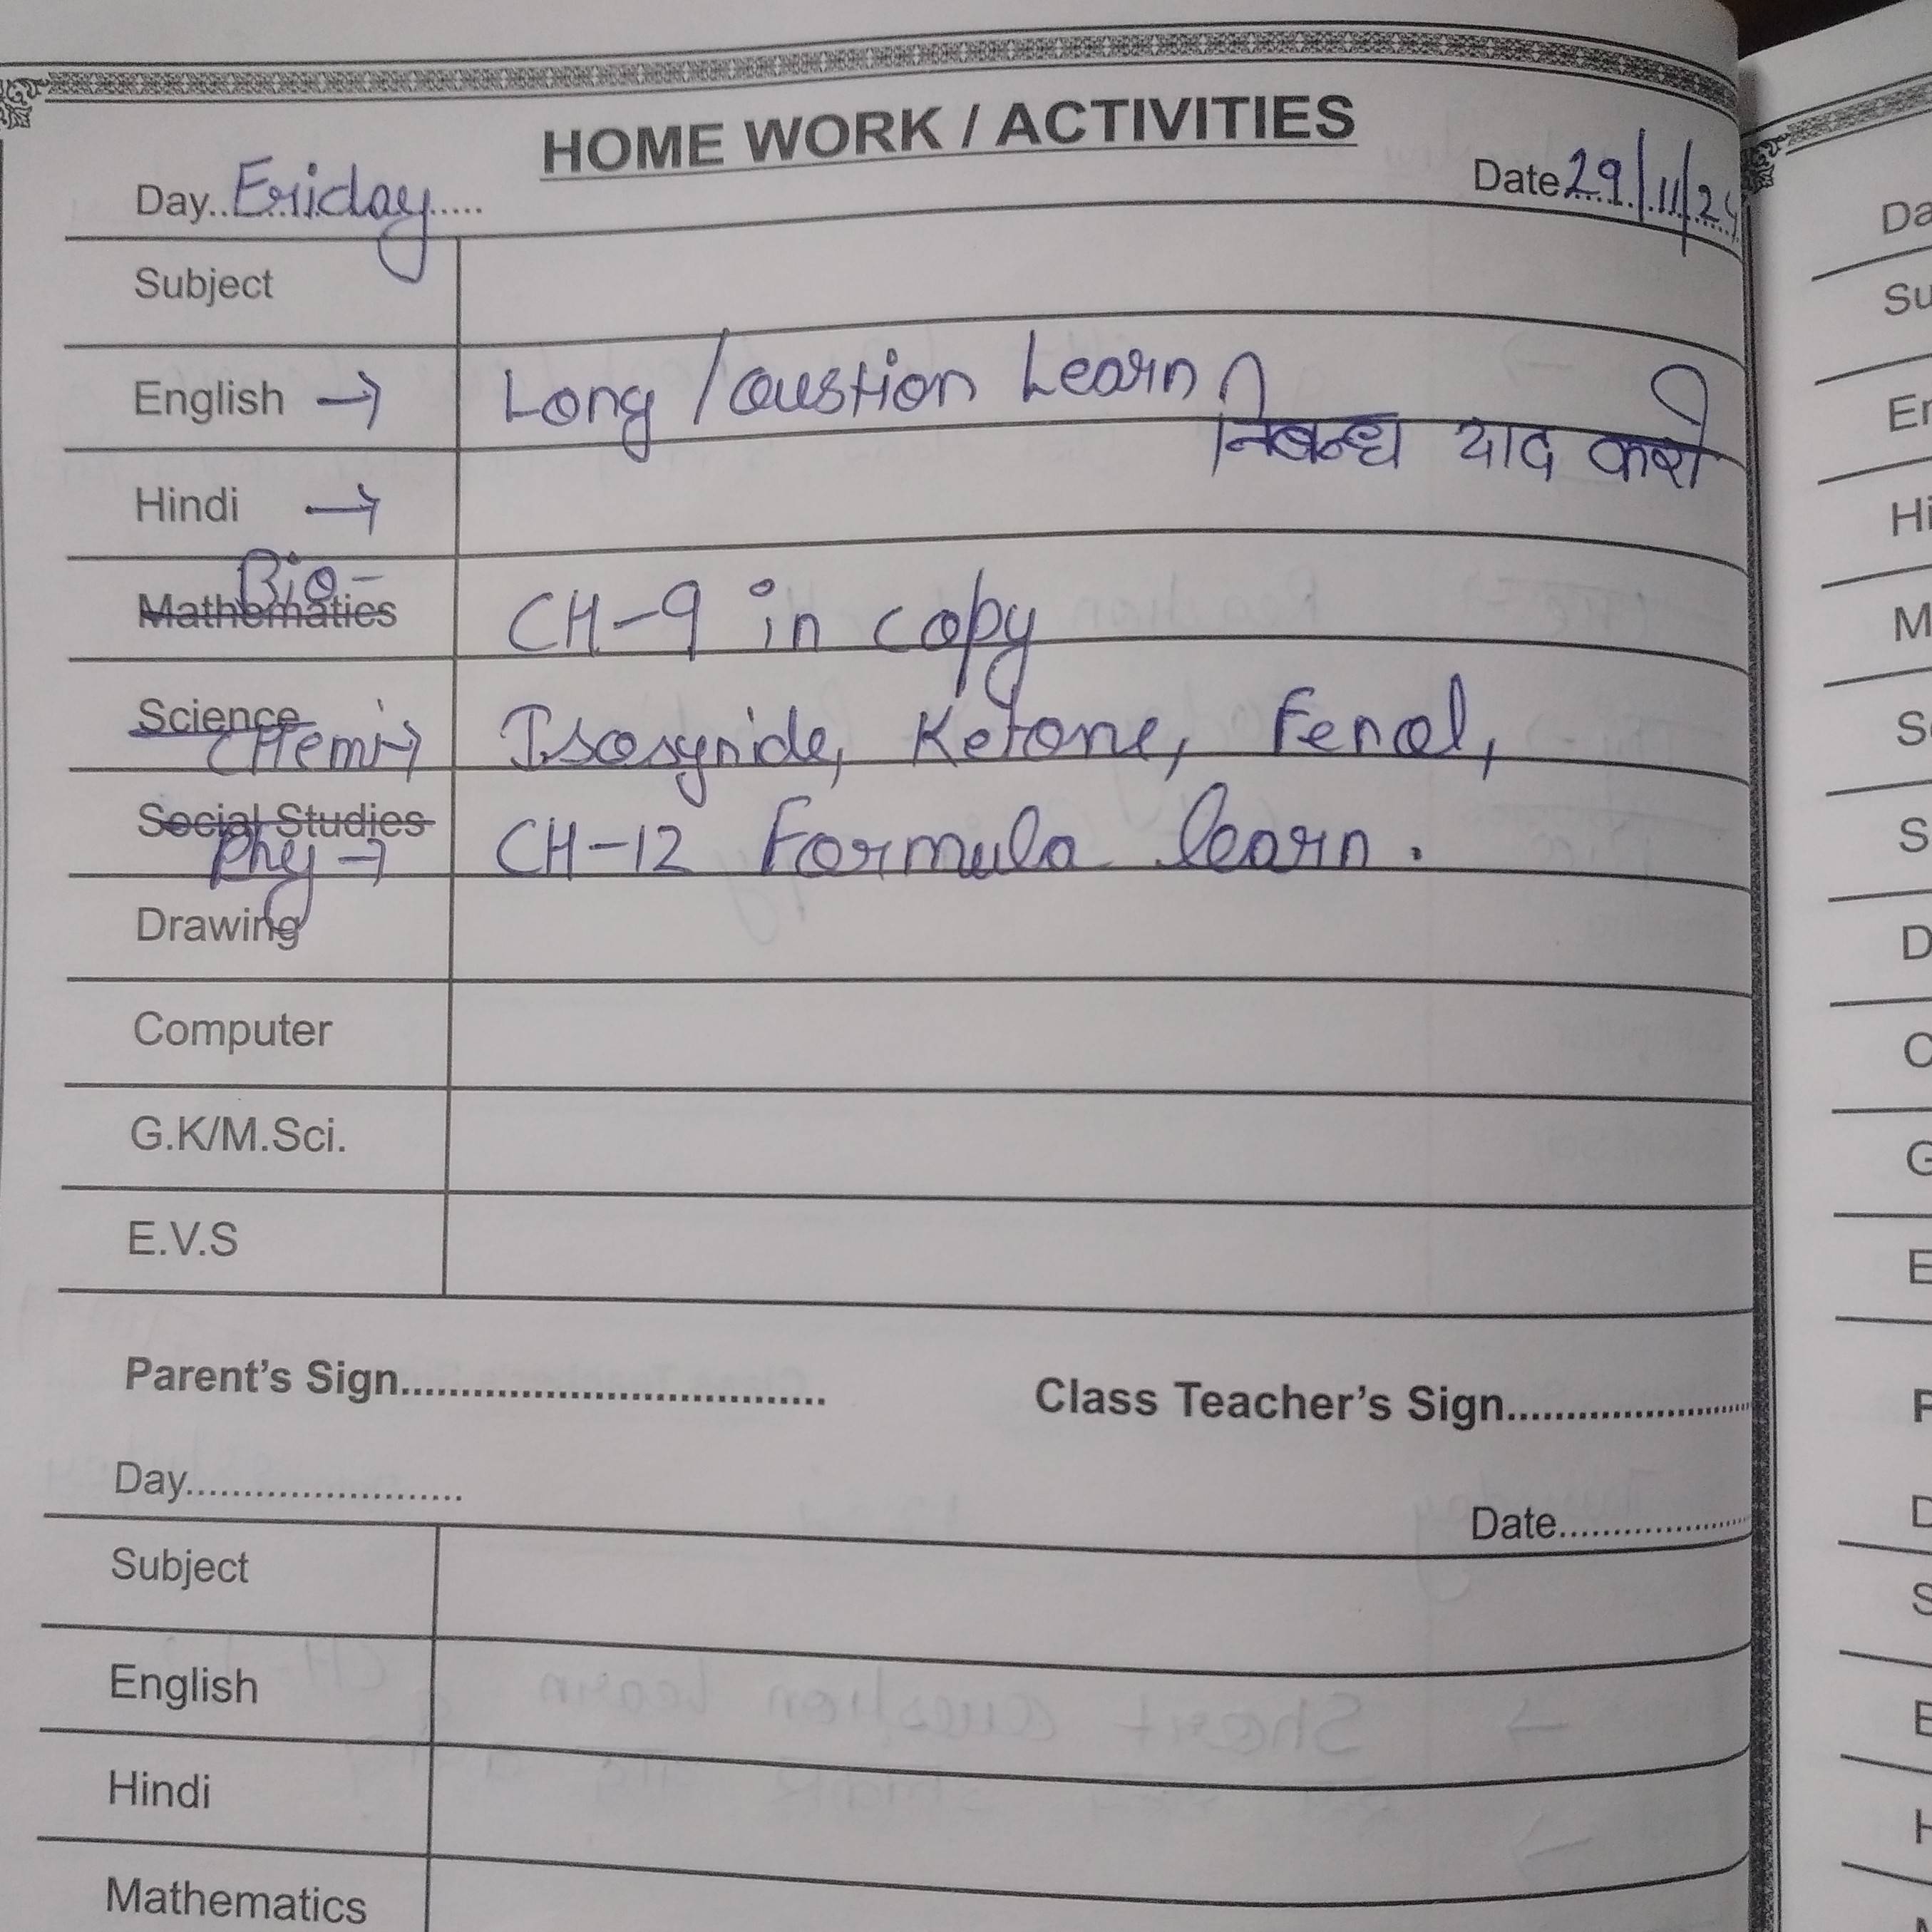 HOME WORK / ACTIVITIES
Day..Friday..... Date 29/11/24
Subject
English → Long / Qustion Learn
निबन्ध याद करो
Hindi →
Mathematics Bio- CH-9 in copy
Science CHemi→ Isosynide, Ketone, Fenol,
Social Studies Phy → CH-12 Formula learn.
Drawing
Computer
G.K/M.Sci.
E.V.S
Parent's Sign................................... Class Teacher's Sign........................
Day........................ Date....................
Subject
English
Hindi
Mathematics